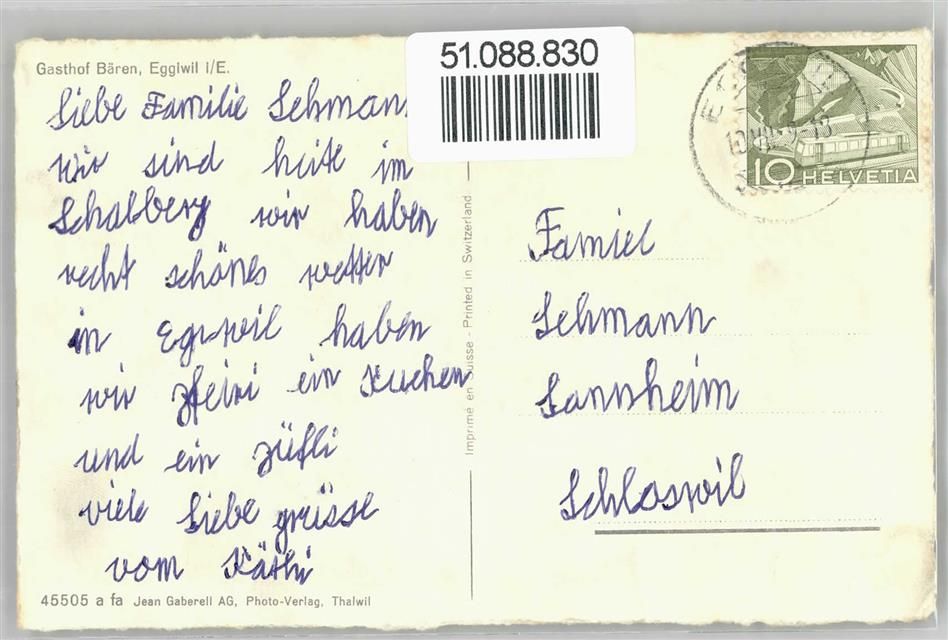 51.088.830
Gasthof Bären, Eggiwil i/E.
Liebe Familie Lehmann
wir sind heite im
Schalberg wir haben
recht schönes wetter
in Egiwil haben
wir zfeiri ein Kuchen
und ein züfli
viele liebe grüsse
vom Käthi
45505 a fa Jean Gaberell AG, Photo-Verlag, Thalwil
Imprimé en Suisse - Printed in Switzerland
10 HELVETIA
Famiel
Lehmann
Lannsheim
Schloswil